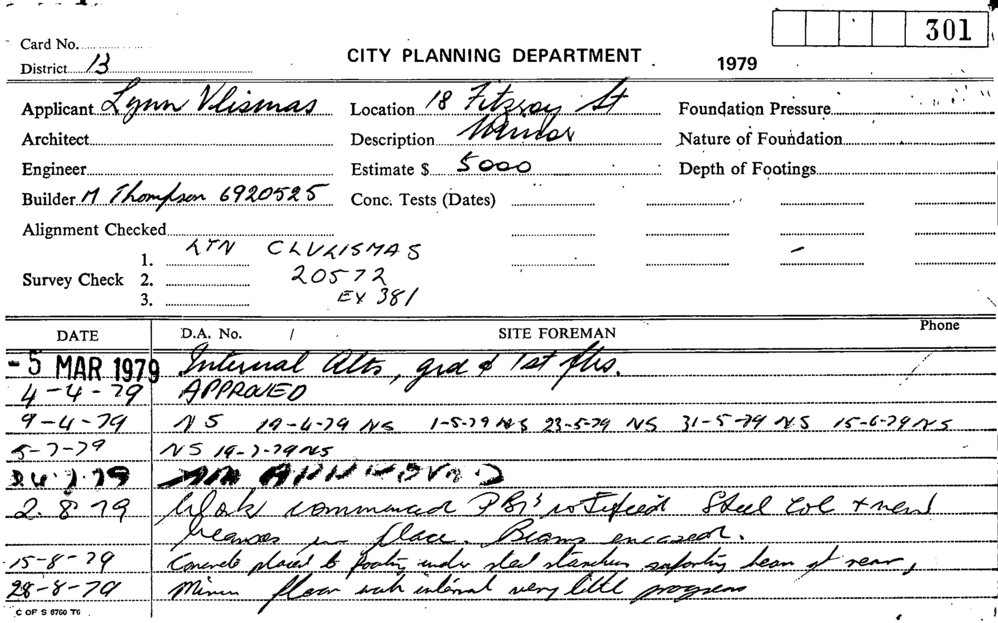 301
Card No.
CITY PLANNING DEPARTMENT
1979
District 13
Applicant Lynn Vlismas Location 18 Fitzroy St Foundation Pressure
Architect Description Minor Nature of Foundation
Engineer Estimate $ 5000 Depth of Footings
Builder M Thompson 6920525 Conc. Tests (Dates)
Alignment Checked
1. LTN CLVLISMAS
Survey Check 2. 20572
3. EX 381
DATE D.A. No. / SITE FOREMAN Phone
-5 MAR 1979 Internal Alts, grd & 1st flrs.
4-4-79 APPROVED
9-4-79 NS 19-4-79 NS 1-5-79 NS 23-5-79 NS 31-5-79 NS 15-6-79 NS
5-7-79 NS 19-7-79 NS
2.8.79 Work commenced PBI's notified Steel Col + new
beams in place. Beams encased.
15-8-79 Concrete placed to footing under steel stanchion supporting beam at rear,
28-8-79 Minor floor work internal very little progress
C OF S 6760 TG